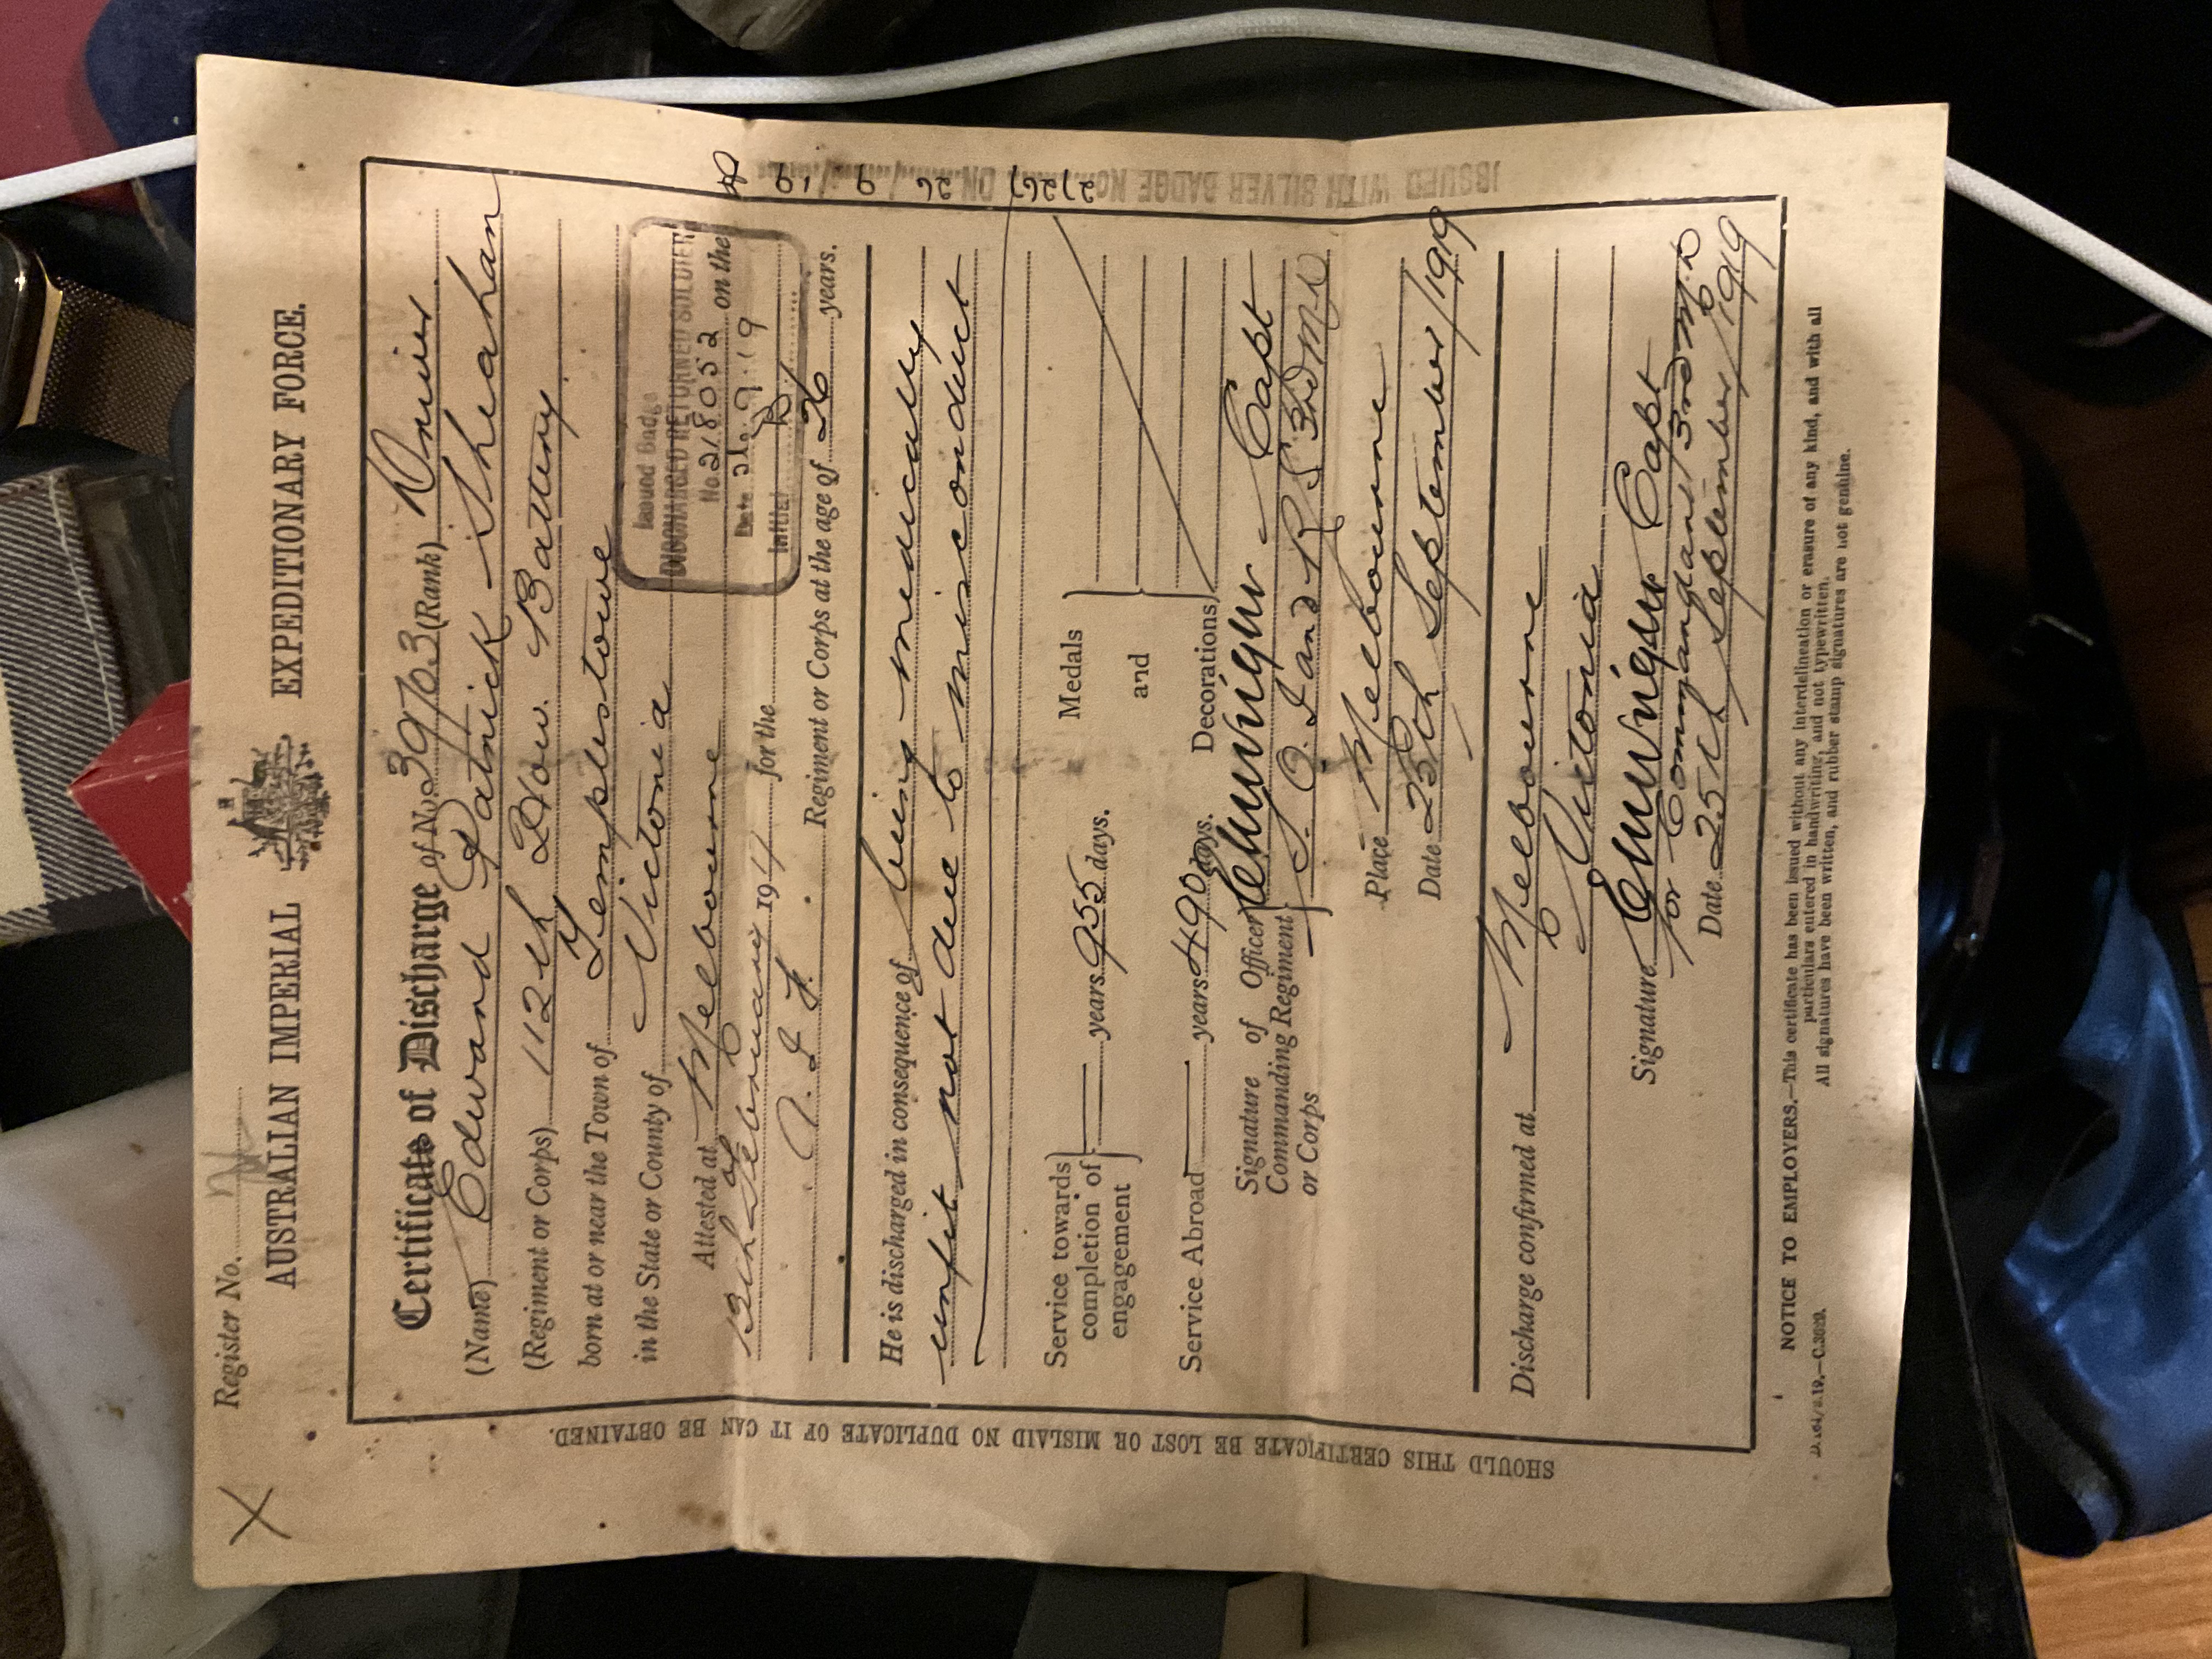 Register No.
AUSTRALIAN IMPERIAL EXPEDITIONARY FORCE.
Certificate of Discharge of No. 39763 (Rank) Driver
(Name) Edward Patrick Sheahan
(Regiment or Corps) 112th How. Battery
born at or near the Town of Templestowe
in the State or County of Victoria
Attested at Melbourne
13th of February 191 for the
A. I. F. Regiment or Corps at the age of 26 years.
Issued Badge
DISCHARGED RETURNED SOLDIER
No 218052 on the
Date 26.9.19
Initial
He is discharged in consequence of being medically
unfit not due to misconduct
Service towards completion of engagement years 955 days.
Service Abroad years 490 days.
Medals
and
Decorations
Signature of Officer
Commanding Regiment
or Corps
Capt
S. O. I and R S 3rd M D
Place Melbourne
Date 25th September/1919
Discharge confirmed at Melbourne
Victoria
Signature Capt
for Commandant 3rd M. D
Date 25th September/1919
NOTICE TO EMPLOYERS.—This certificate has been issued without any interdelineation or erasure of any kind, and with all
particulars entered in handwriting, and not typewritten.
All signatures have been written, and rubber stamp signatures are not genuine.
SHOULD THIS CERTIFICATE BE LOST OR MISLAID NO DUPLICATE OF IT CAN BE OBTAINED.
ISSUED WITH SILVER BADGE No. 27267 ON 26/9/19
X